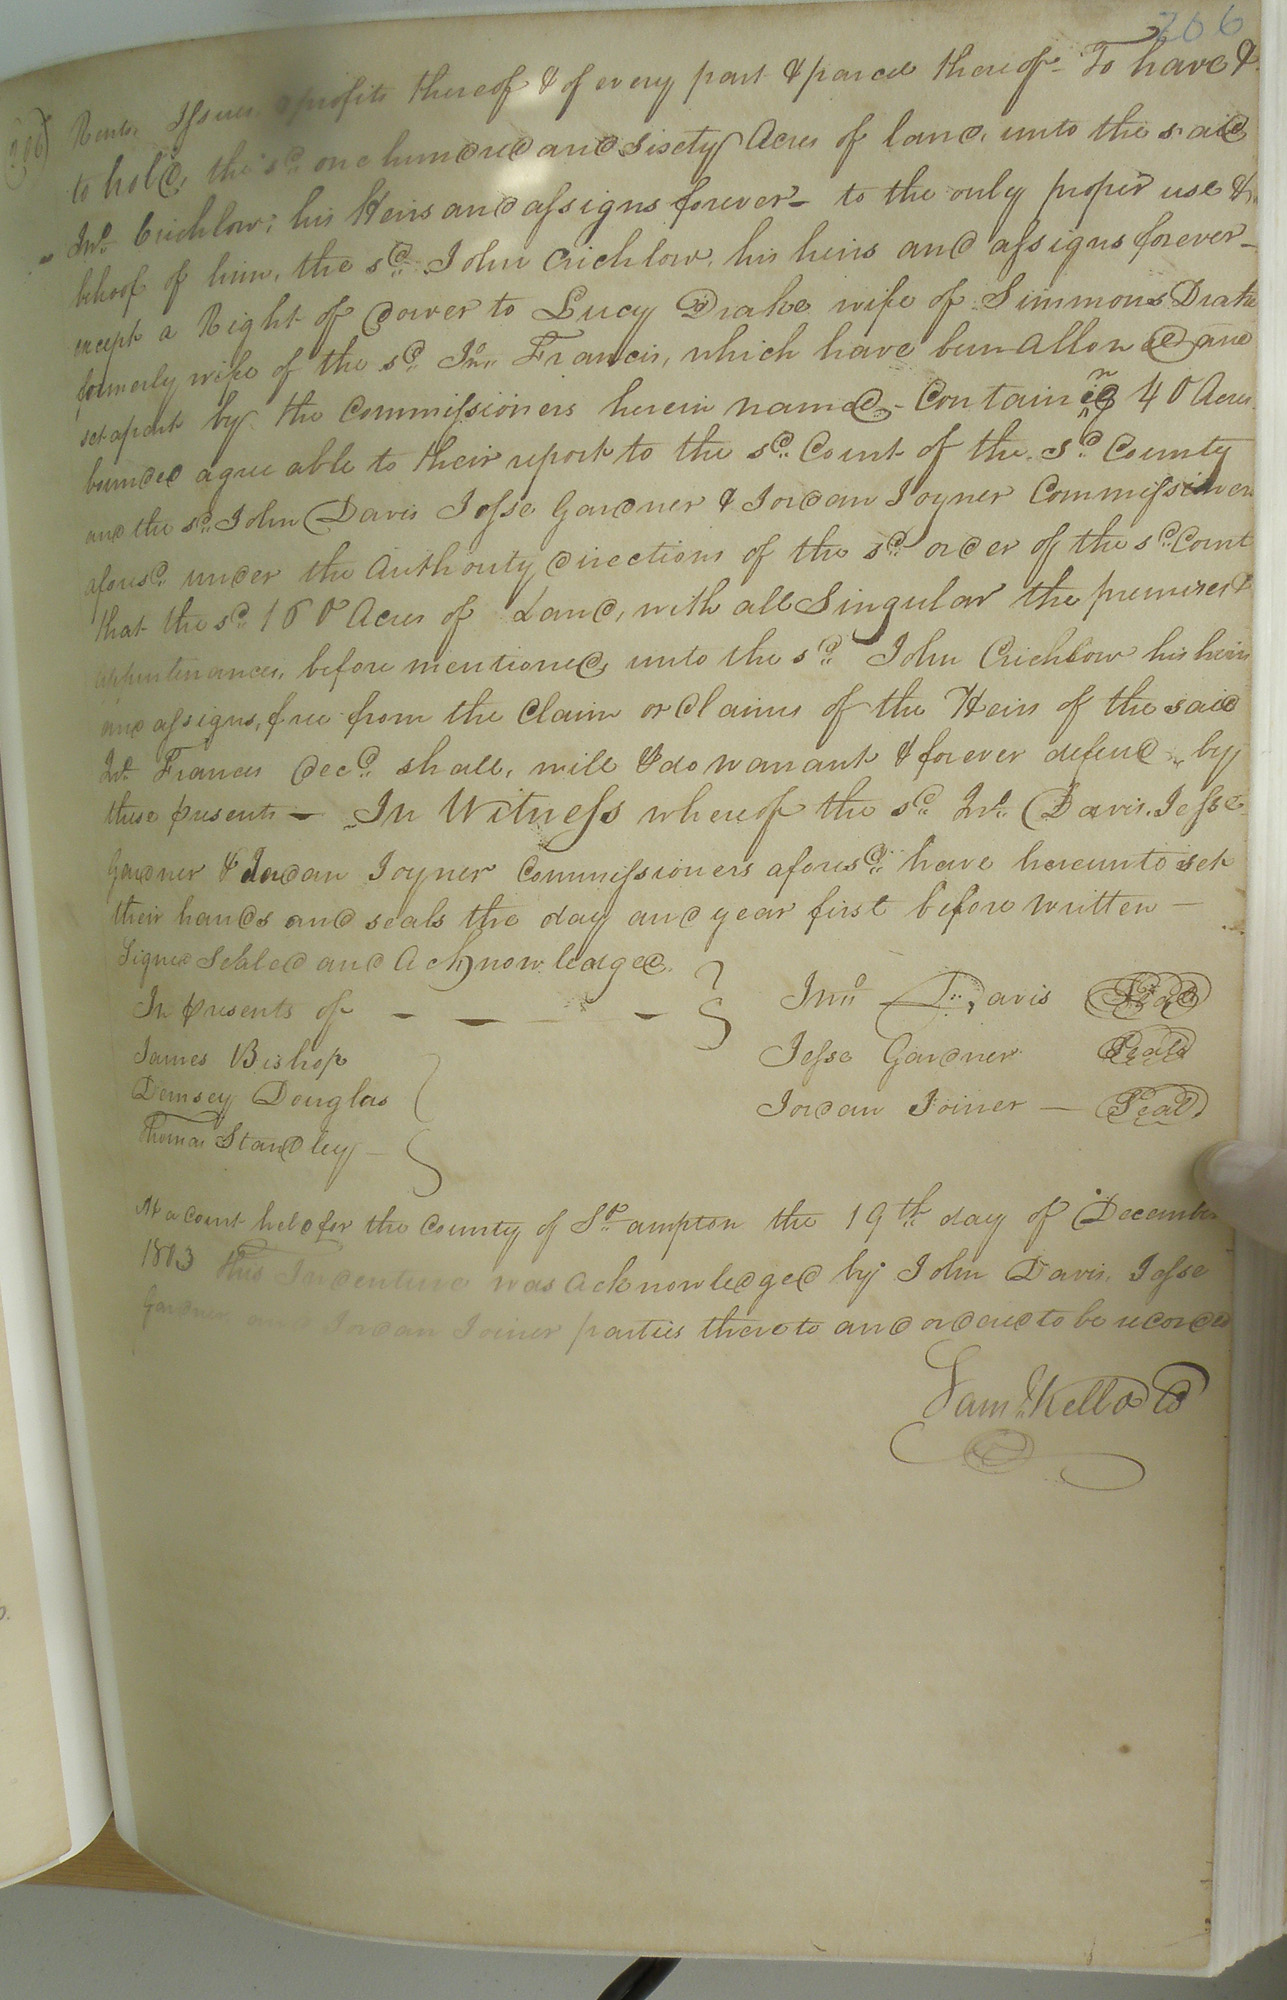 206
(206)
Rents Issues & profits thereof & of every part & parcel thereof - To have &
to hold, the sd. one hundred and Sixety Acres of land, unto the said
Jno. Crichlow; his Heirs and assigns forever - to the only proper use &
behoof of him, the sd. John Crichlow, his heirs and assigns forever -
except a Right of dower to Lucy Drake wife of Simmons Drake
formerly wife of the sd. Jno. Francis, which have been Allowed and
set apart by the Commissioners herein named - Containing 40 Acres
bunded agreeable to their report to the sd. Court of the sd. County
and the sd. John Davis Jesse Gardner & Jordan Joyner Commissioners
aforesd. under the Authority directions of the sd. order of the sd. Court
that the sd. 160 Acres of Land, with all Singular the premises &
appurtenances, before mentioned, unto the sd. John Crichlow his heirs
and assigns, free from the Claim or Claims of the Heirs of the said
Jno. Francis decd. shall, will & do warrant & forever defend by
these presents - In Witness whereof the sd. Jno. Davis, Jesse
Gardner & Jordan Joyner Commissioners aforesd. have hereunto set
their hands and seals the day and year first before written -
Signed Sealed and Acknowledged
In presents of - - - - Jno. Davis Seal
James Bishop Jesse Gardner Seal
Demsey Douglas Jordan Joiner - Seal
Thomas Standley -
At a Court held for the County of So.ampton the 19th day of December
1803 this Indenture was Acknowledged by John Davis, Jesse
Gardner and Jordan Joiner parties thereto and ordered to be recorded
Sam. Kello